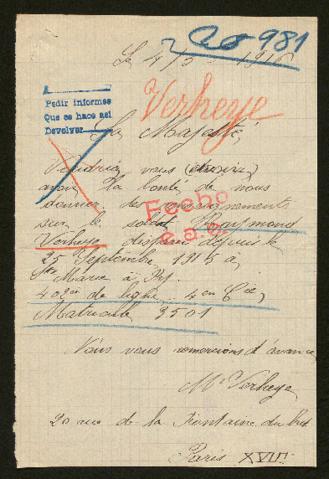 981
Le 4/3 - 1916
Pedir informes
Que se hace asi
Devolver
Verheye
Sa Majesté,
Voudriez vous
avoir la bonté de nous
donner des renseignements
sur le soldat Raymond
Verheye disparu depuis le
25 Septembre 1915 à
Ste Marie à Py.
402e de ligne 4em Cie,
Matricule 3501
Fecho
Vous vous remercions d'avance
Mr Verheye
20 rue de la Fontaine du but
Paris XVIII